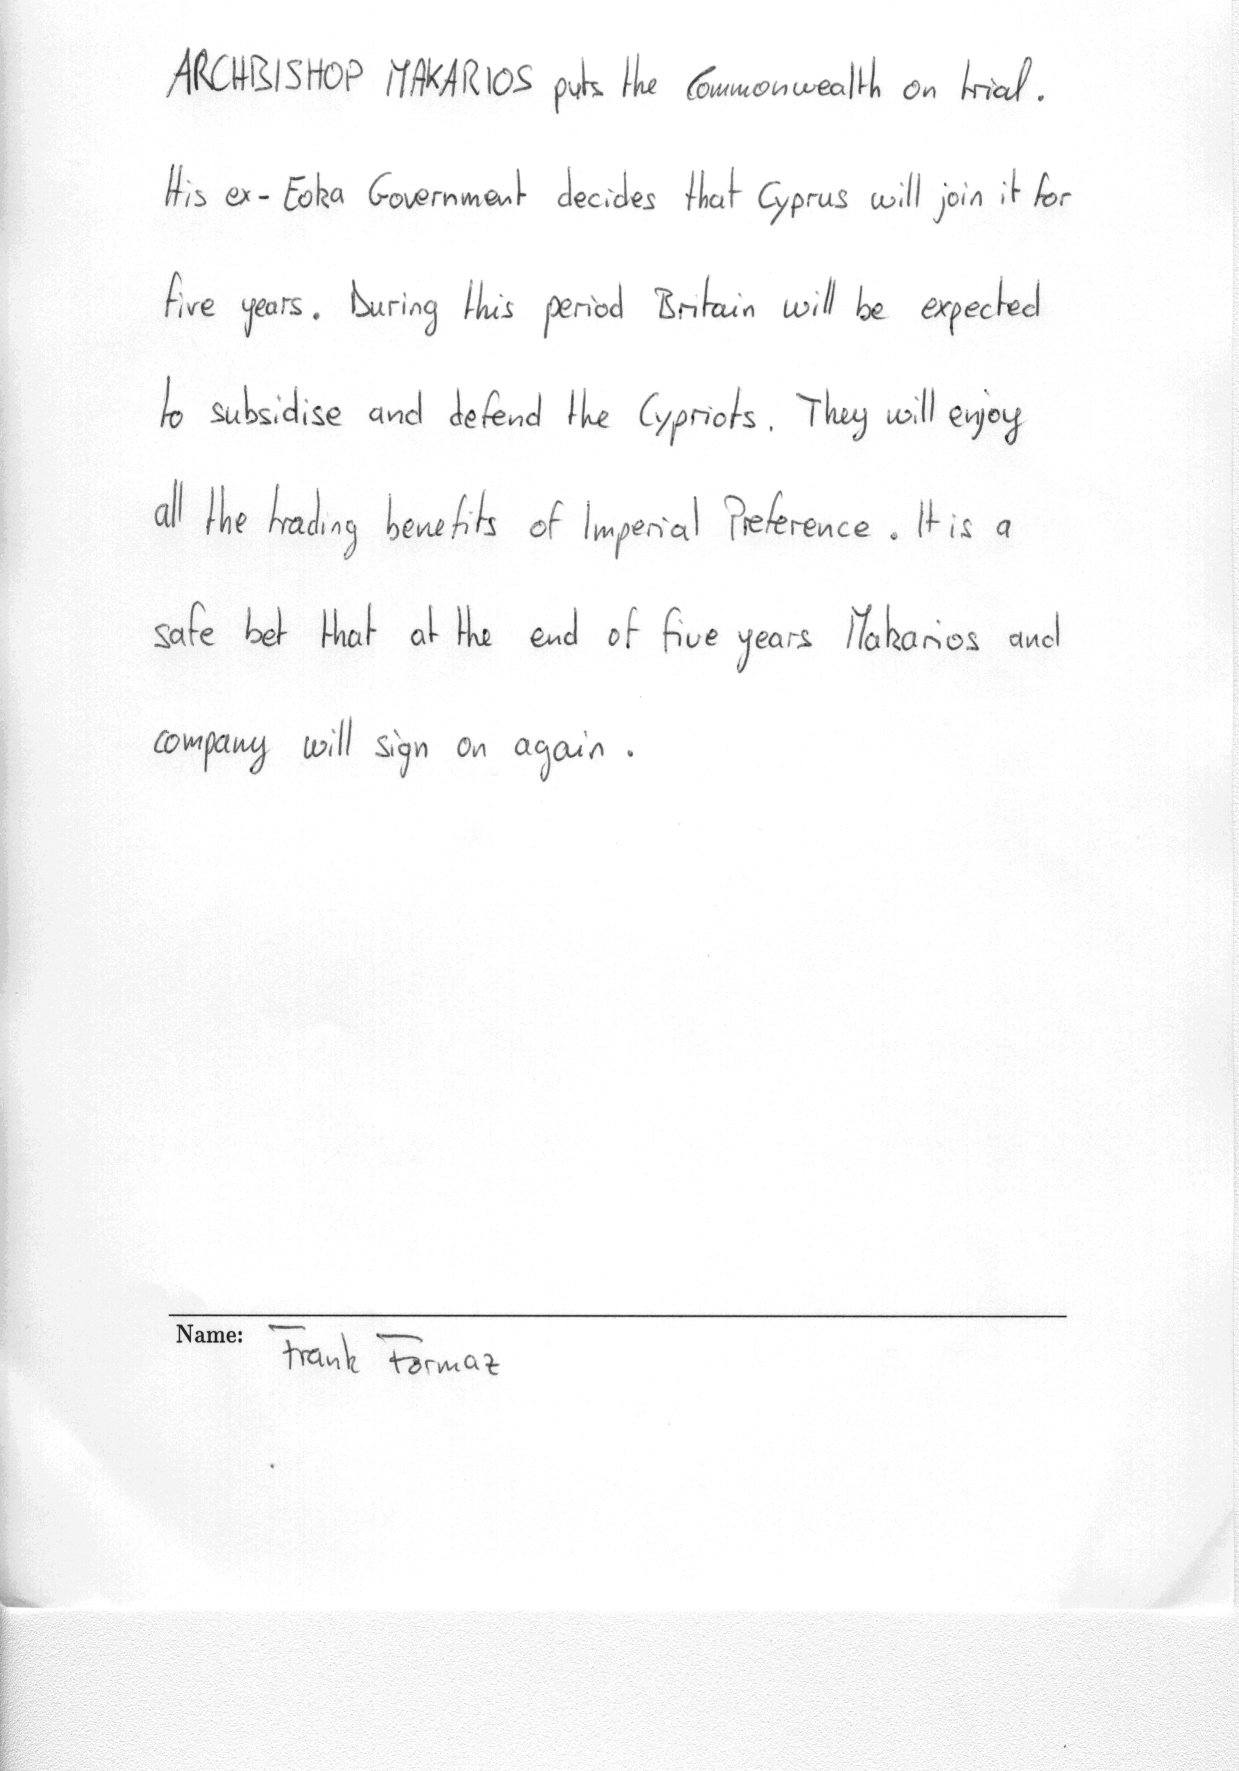 ARCHBISHOP MAKARIOS puts the Commonwealth on trial.
His ex-Eoka Government decides that Cyprus will join it for
five years. During this period Britain will be expected
to subsidise and defend the Cypriots. They will enjoy
all the trading benefits of Imperial Preference. It is a
safe bet that at the end of five years Makarios and
company will sign on again.
Name: Frank Formaz